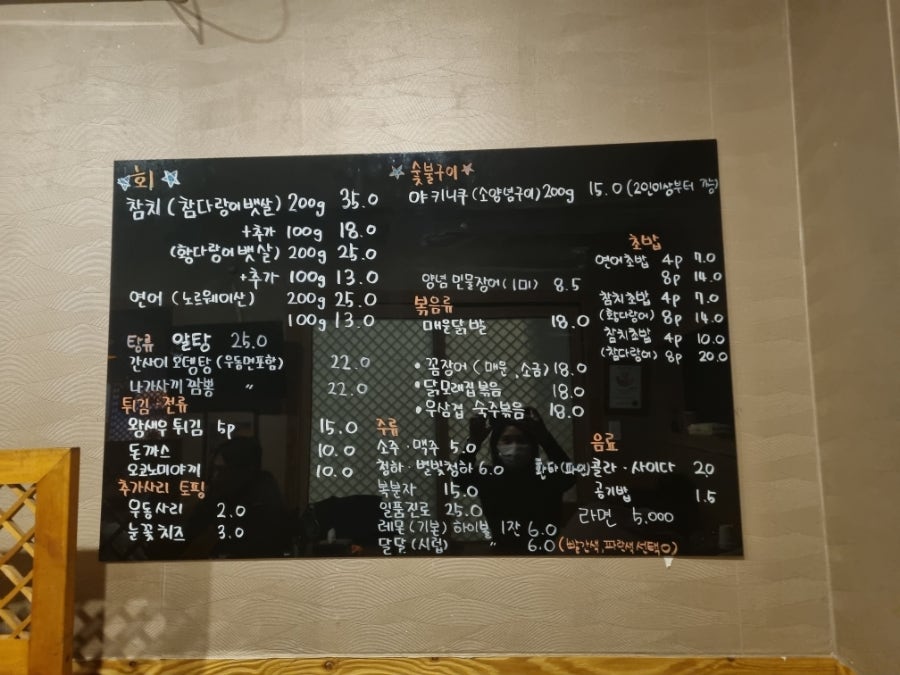 회
참치 (참다랑어뱃살) 200g 35.0
+추가 100g 18.0
(황다랑어뱃살) 200g 25.0
+추가 100g 13.0
연어 (노르웨이산) 200g 25.0
100g 13.0
탕류 알탕 25.0
간사이 오뎅탕 (우동면포함) 22.0
나가사끼 짬뽕 〃 22.0
튀김·전류
왕새우 튀김 5p 15.0
돈까스 10.0
오코노미야끼 10.0
추가사리 토핑
우동사리 2.0
눈꽃치즈 3.0
숯불구이
야키니쿠 (소양념구이) 200g 15.0 (2인이상부터 가능)
양념 민물장어 (1미) 8.5
볶음류
매운닭발 18.0
•꼼장어 (매운, 소금) 18.0
•닭모래집볶음 18.0
•우삼겹 숙주볶음 18.0
주류
소주·맥주 5.0
청하·별빛청하 6.0
복분자 15.0
일품진로 25.0
레몬(기본) 하이볼 1잔 6.0
달달(시럽) 〃 6.0 (빨간색, 파란색 선택O)
초밥
연어초밥 4p 7.0
8p 14.0
참치초밥 4p 7.0
(황다랑어) 8p 14.0
참치초밥 4p 10.0
(참다랑어) 8p 20.0
음료
환타(파인) 콜라·사이다 2.0
공기밥 1.5
라면 5,000